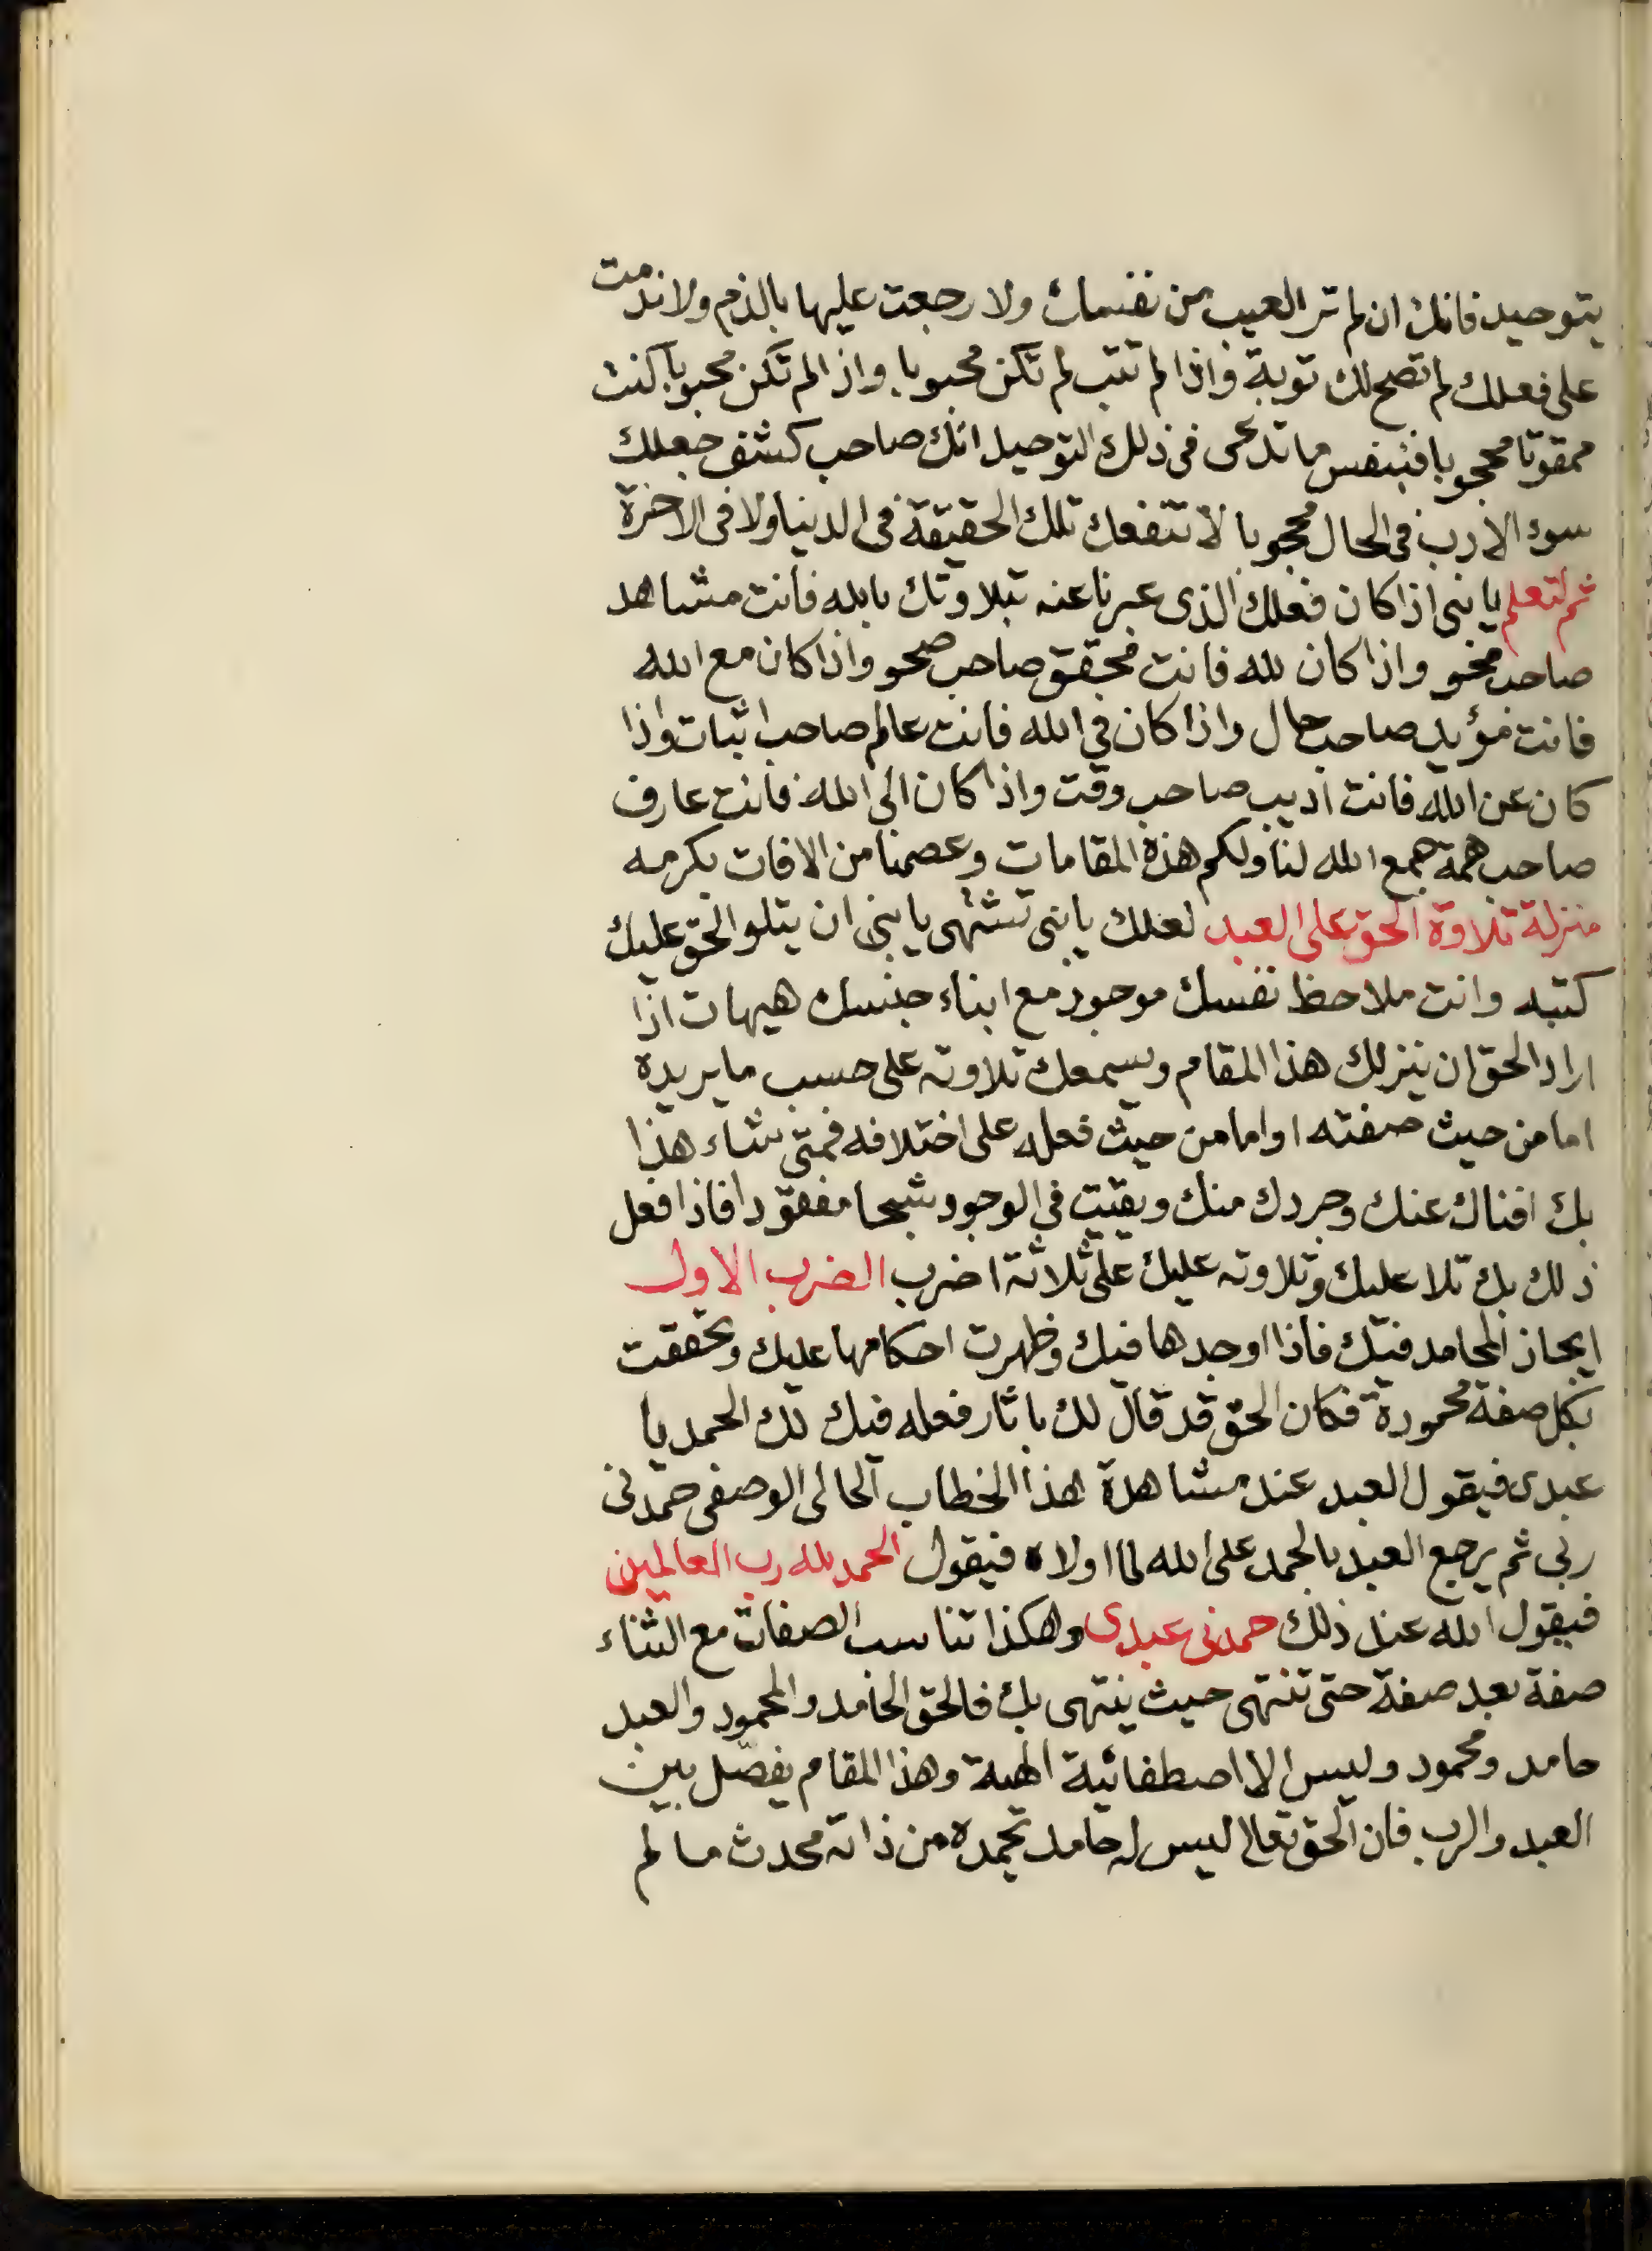 بتوحيد فانك ان لم تر العيب من نفسك ولا رجعت عليها بالذم ولا ندمت
على فعلك لم تصح لك توبة واذا لم تتب لم تكن محبوبا واذا لم تكن محبوبا كنت
ممقوتا محجوبا فبنفس ما تدعى فى ذلك التوحيد انك صاحب كشف جعلك
سوء الادب فى الحال محجوبا لا تنفعك تلك الحقيقة فى الدنيا ولا فى الاخرة
ثم لتعلم يا بنى اذا كان فعلك الذى عبرنا عنه بتلاوتك بالله فانت مشاهد
صاحب محو واذا كان لله فانت محقق صاحب صحو واذا كان مع الله
فانت مؤيد صاحب حال واذا كان فى الله فانت عالم صاحب اثبات واذا
كان عن الله فانت اديب صاحب وقت واذا كان الى الله فانت عارف
صاحب همة جمع الله لنا ولكم هذه المقامات وعصمنا من الافات بكرمه
منزلة تلاوة الحق على العبد لعلك يا بنى تشتهى يا بنى ان يتلو الحق عليك
كتبه وانت ملاحظ نفسك موجود مع ابناء جنسك هيهات اذا
اراد الحق ان ينزلك هذا المقام ويسمعك تلاوته على حسب ما يريده
اما من حيث صفته او اما من حيث فعله على اختلافه فمتى شاء هذا
بك افناك عنك وجردك منك وبقيت فى الوجود شبحا مفقودا فاذا فعل
ذلك بك تلا عليك وتلاوته عليك على ثلاثة اضرب الضرب الاول
ايجاد المحامد فيك فاذا اوجدها فيك وظهرت احكامها عليك وتحققت
بكل صفة محمودة فكان الحق قد قال لك باثار فعله فيك لك الحمد يا
عبدى فيقول العبد عند مشاهدة هذا الخطاب الحالى الوصفى حمدنى
ربى ثم يرجع العبد بالحمد على الله لما اولاه فيقول الحمد لله رب العالمين
فيقول الله عند ذلك حمدنى عبدى وهكذا تناسب الصفات مع الثناء
صفة بعد صفة حتى تنتهى حيث ينتهى بك فالحق الحامد والمحمود والعبد
حامد ومحمود وليس الا اصطفائية الهية وهذا المقام يفصل بين
العبد والرب فان الحق تعالى ليس له حامد يحمده من ذاته محدث ما لم